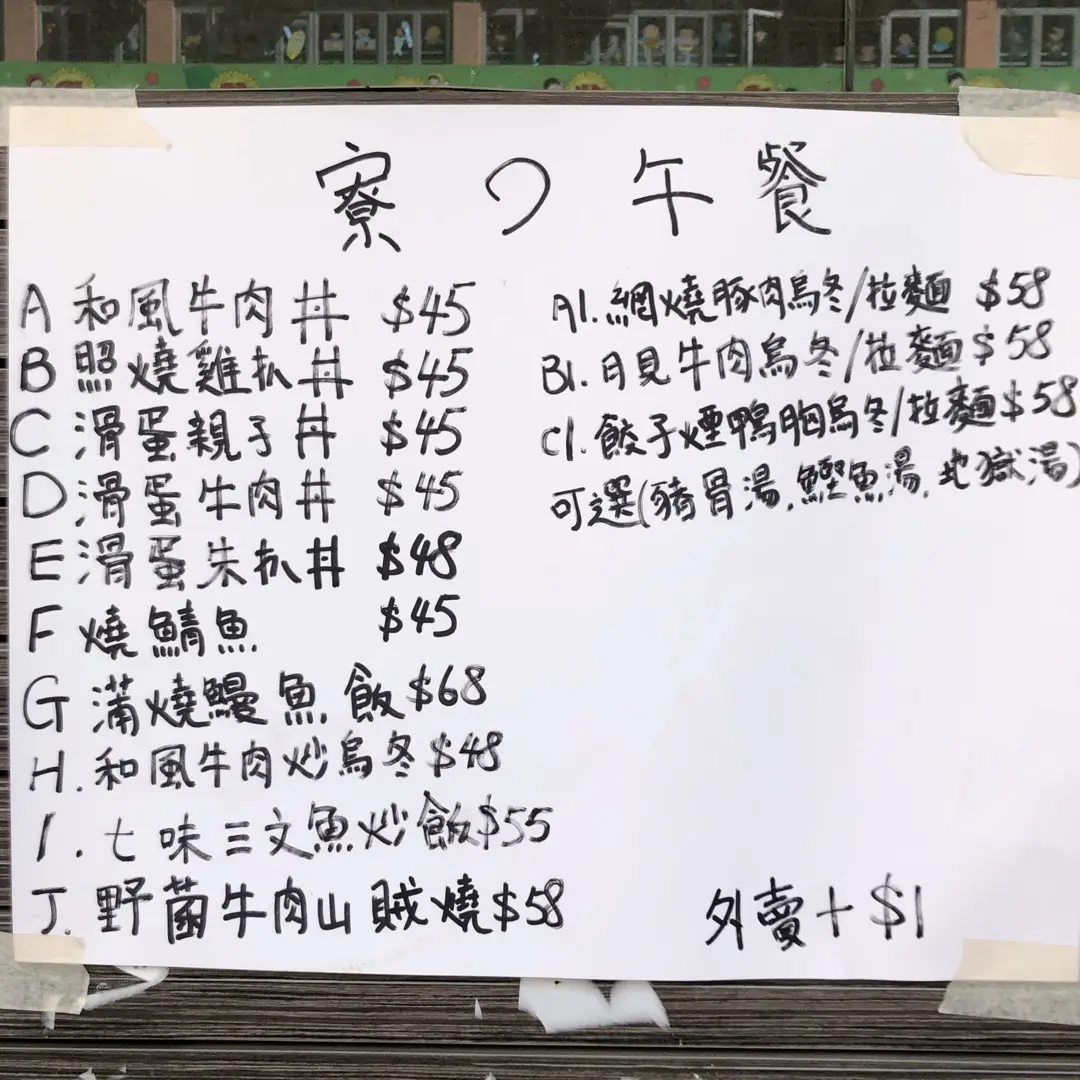 寮つ午餐
A 和風牛肉丼 $45
B 照燒雞扒丼 $45
C 滑蛋親子丼 $45
D 滑蛋牛肉丼 $45
E 滑蛋朱扒丼 $48
F 燒鯖魚 $45
G 蒲燒鰻魚飯 $68
H. 和風牛肉炒烏冬 $48
I. 七味三文魚炒飯 $55
J. 野菌牛肉山賊燒 $58
A1. 網燒豚肉烏冬/拉麵 $58
B1. 月見牛肉烏冬/拉麵 $58
C1. 餃子煙鴨胸烏冬/拉麵 $58
可選(豬骨湯, 鰹魚湯, 地獄湯)
外賣+$1